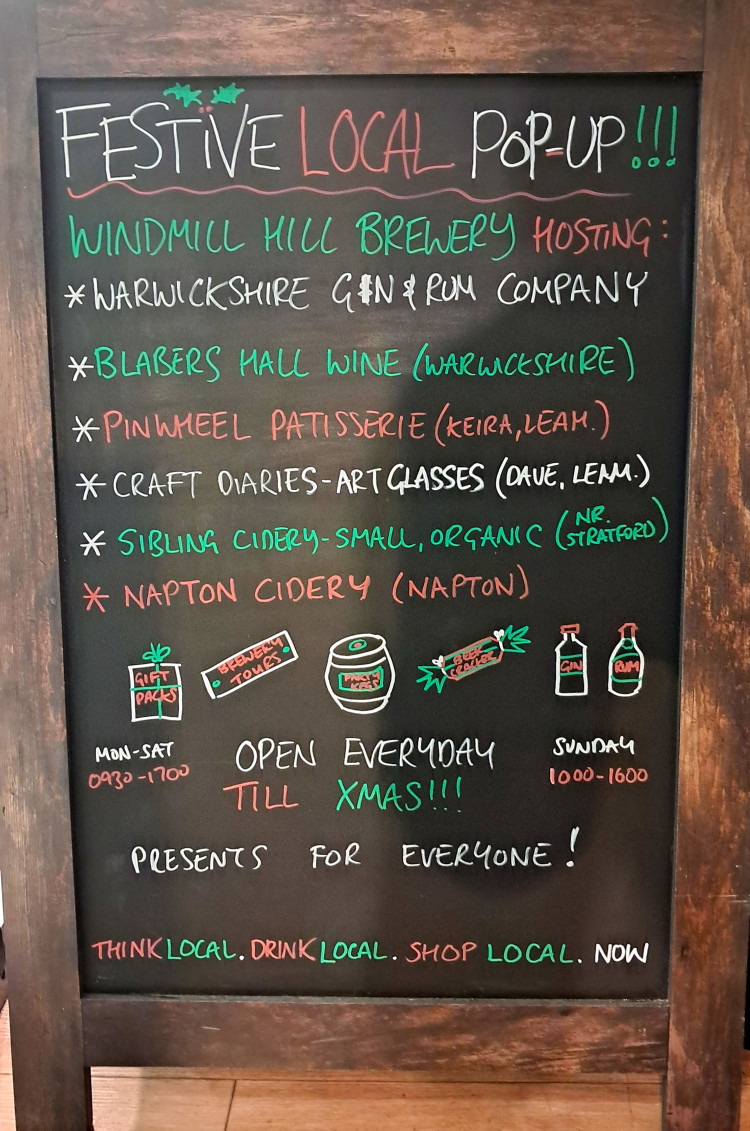 FESTIVE LOCAL POP-UP!!!
WINDMILL HILL BREWERY HOSTING:
* WARWICKSHIRE GIN & RUM COMPANY
* BLABERS HALL WINE (WARWICKSHIRE)
* PINWHEEL PATISSERIE (KEIRA, LEAM.)
* CRAFT DIARIES - ART GLASSES (DAVE, LEAM.)
* SIBLING CIDERY - SMALL, ORGANIC (NR. STRATFORD)
* NAPTON CIDERY (NAPTON)
GIFT
PACKS
BREWERY
TOURS
PARTY
KEGS
BEER
CRACKER
GIN
RUM
MON-SAT
0930-1700
OPEN EVERYDAY
TILL XMAS!!!
SUNDAY
1000-1600
PRESENTS FOR EVERYONE!
THINK LOCAL. DRINK LOCAL. SHOP LOCAL. NOW